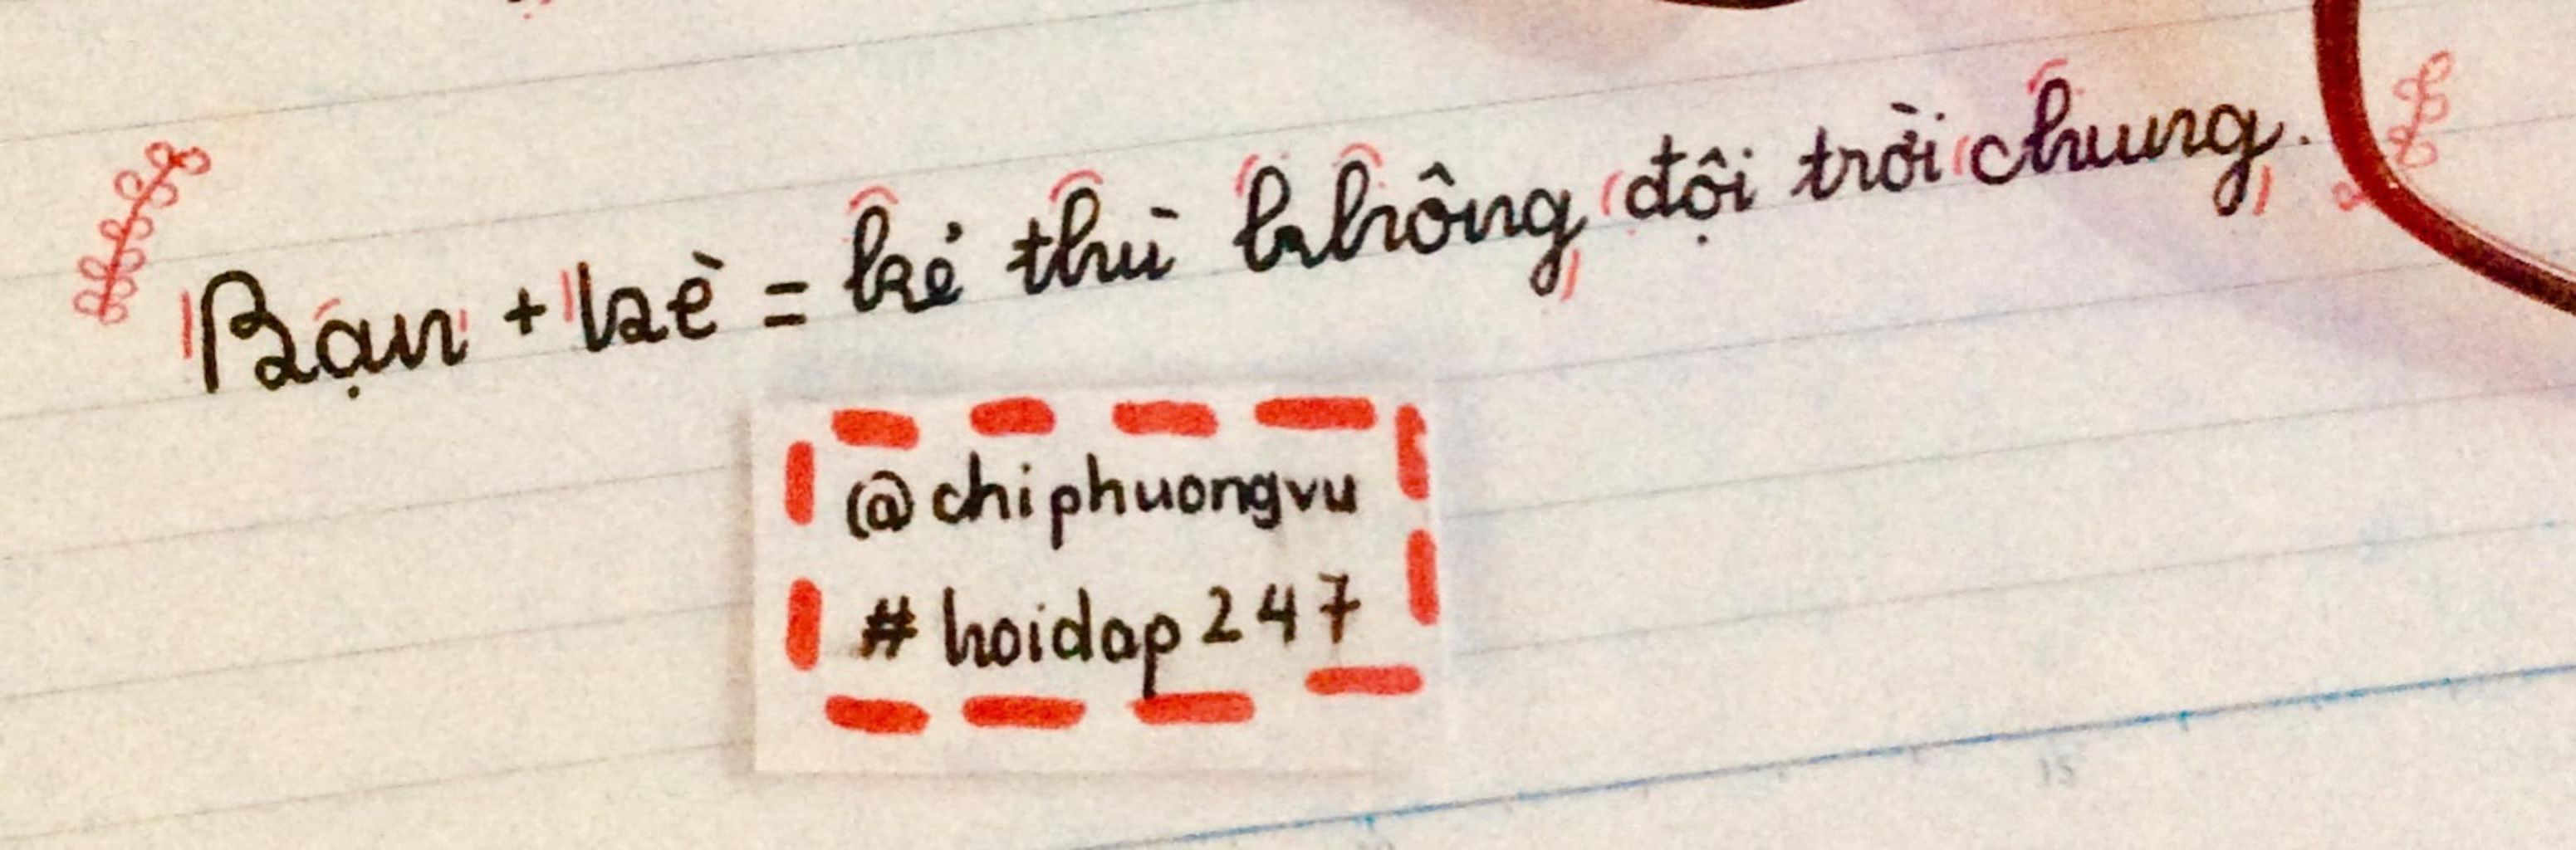 Bạn + bè = kẻ thù không đội trời chung.
@chiphuongvu
#hoidap247
15